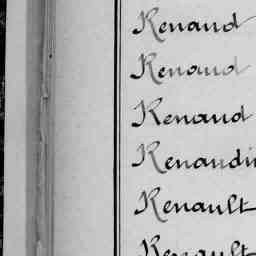 Renaud
Renaud
Renaud
Renaudi
Renault
Renault